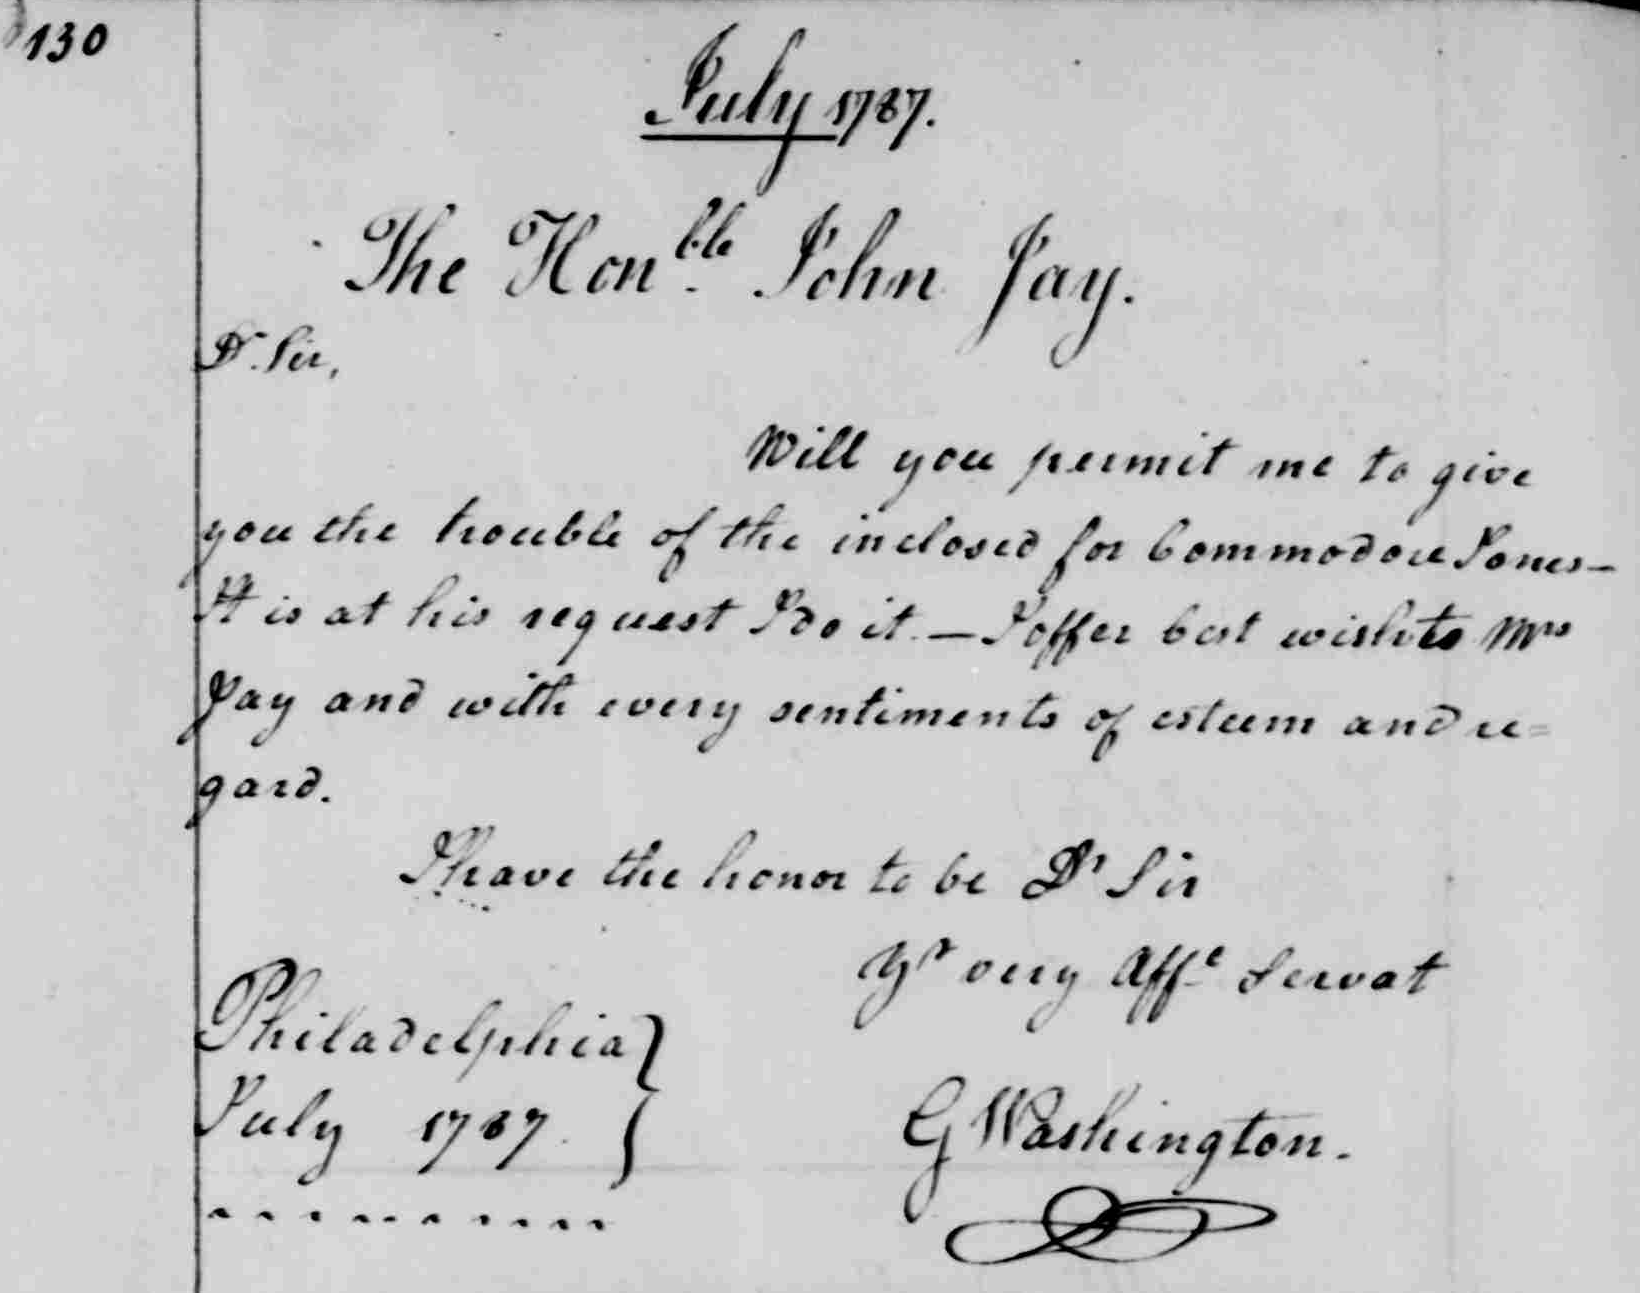 130
July 1787.
The Honble John Jay.
Dr. Sir,
Will you permit me to give
you the trouble of the inclosed for Commodore Jones—
It is at his request I do it.—I offer best wish to Mrs
Jay and with every sentiments of esteem and re=
gard.
I have the honor to be Dr Sir
Yr very Affe Servat
Philadelphia }
July 1787. }
G Washington.